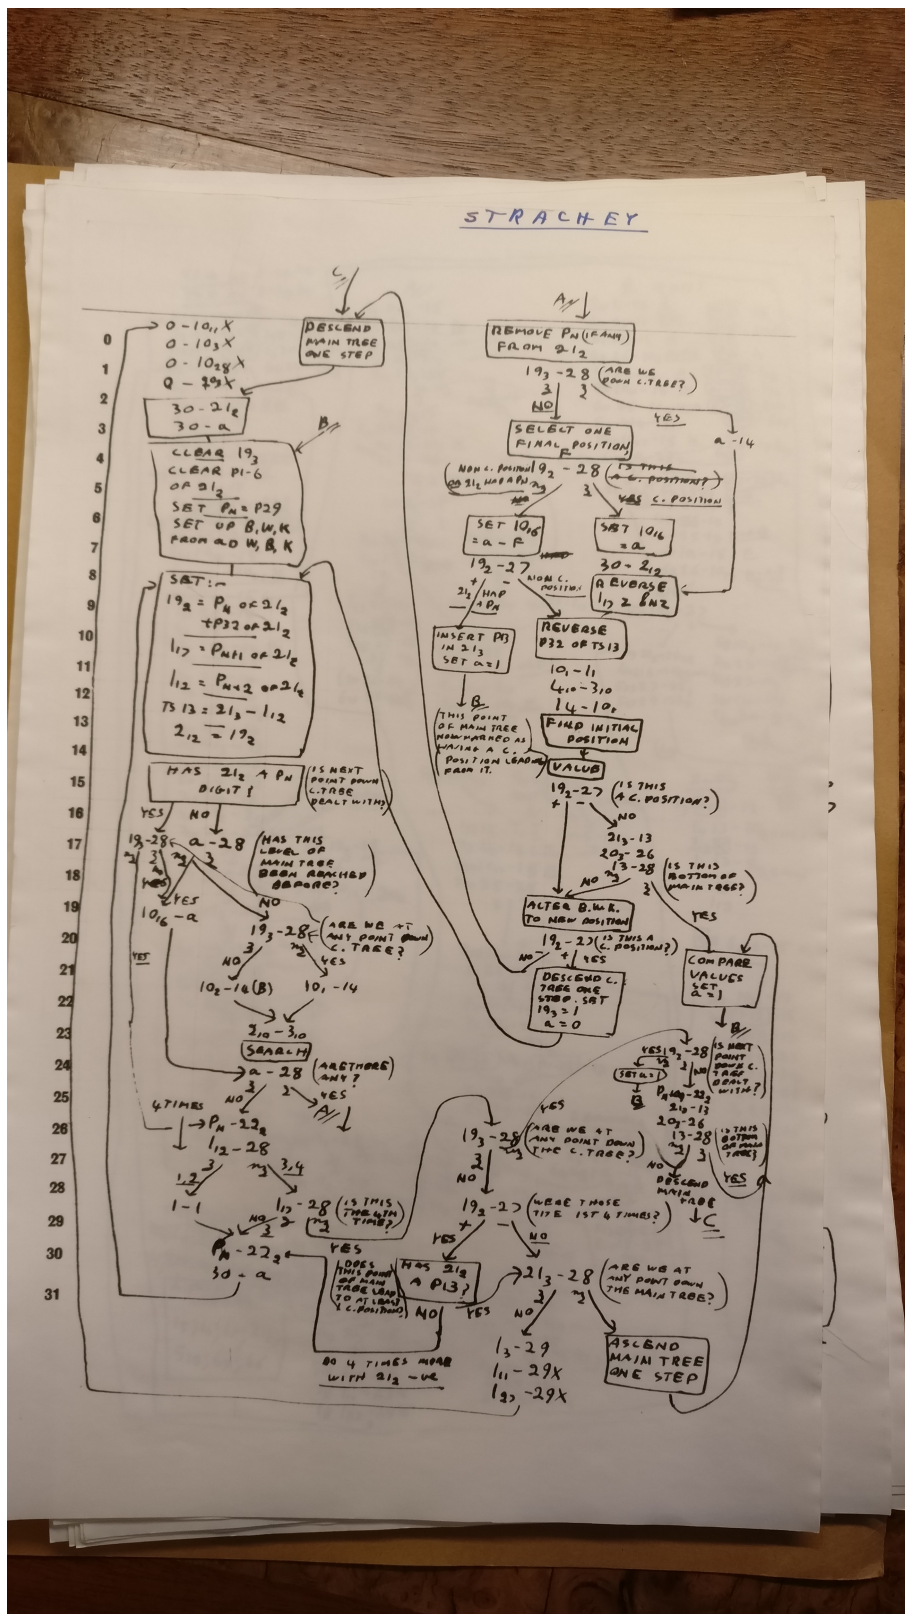 STRACHEY
C
DESCEND
MAIN TREE
ONE STEP
0 - 10₁₁ X
0 - 10₃ X
0 - 10₂₈ X
0 - 20₃ X
30 - 21₂
30 - a
B
CLEAR 19₃
CLEAR P1-6
OF 21₂
SET Pₙ = P29
SET UP B, W, K
FROM a D W, B, K
SET:-
19₂ = Pₙ OF 21₂
+P32 OF 21₂
1₁₇ = Pₙ₊₁ OF 21₂
1₁₂ = Pₙ₊₂ OF 21₂
TS 13 = 21₃ - 1₁₂
2₁₂ = 19₂
HAS 21₂ A Pₙ
DIGIT?
(IS NEXT
POINT DOWN
C. TREE
DEALT WITH?)
YES
NO
19₃-28
a-28
(HAS THIS
LEVEL OF
MAIN TREE
BEEN REACHED
BEFORE?)
YES
YES
NO
10₁₆ - a
19₃-28
(ARE WE AT
ANY POINT DOWN
C. TREE?)
NO
YES
YES
10₂-14 (B)
10₁-14
2₁₀ - 3₁₀
SEARCH
a - 28
(ARE THERE
ANY?)
NO
YES
A
4 TIMES
Pₙ - 22₂
1₁₂ - 28
1,2
3,4
1-1
1₁₇ - 28
(IS THIS
THE 4TH
TIME?)
NO
YES
Pₙ - 22₂
30 - a
(DOES
THIS POINT
OF MAIN
TREE LEAD
TO AT LEAST
1 C. POSITION?)
HAS 21₂
A P13?
NO
YES
DO 4 TIMES MORE
WITH 21₂ -VE
A
REMOVE Pₙ (IF ANY)
FROM 21₂
19₃ - 28 (ARE WE
DOWN C. TREE?)
NO
YES
a - 14
SELECT ONE
FINAL POSITION,
F
(NON C. POSITION
OR 21₂ HAD A Pₙ
19₂ - 28
(IS THIS
A C. POSITION?)
NO
YES C. POSITION
SET 10₁₆
= a - F
SET 10₁₆
= a
19₂ - 27
30 - 2₁₂
REVERSE
NON C.
POSITION
21₂ HAD
A Pₙ
INSERT P13
IN 21₃
SET a = 1
REVERSE
P32 OF TS13
B
10₁ - 1₁
4₁₀ - 3₁₀
14 - 10₁
(THIS POINT
OF MAIN TREE
NOW MARKED AS
HAVING A C.
POSITION LEADING
FROM IT.)
FIND INITIAL
POSITION
VALUE
19₂ - 27 (IS THIS
A C. POSITION?)
+ -
NO
21₃ - 13
20₃ - 26
13 - 28
(IS THIS
BOTTOM OF
MAIN TREE?)
NO
YES
ALTER B.W.K.
TO NEW POSITION
19₂ - 27 (IS THIS A
C. POSITION?)
NO
YES
DESCEND C.
TREE ONE
STEP. SET
19₃ = 1
a = 0
COMPARE
VALUES
SET
a = 1
B
YES
19₃ - 28
(IS NEXT
POINT
DOWN C.
TREE
DEALT
WITH?)
NO
SET a = 1
B
21₃ - 13
20₃ - 26
13 - 28
(IS THIS
BOTTOM
OF MAIN
TREE?)
NO
YES
DESCEND
MAIN
TREE
C
YES
19₃ - 28
(ARE WE AT
ANY POINT DOWN
THE C. TREE?)
NO
19₂ - 27 (WERE THOSE
THE 1ST 4 TIMES?)
+ -
YES
NO
21₃ - 28
(ARE WE AT
ANY POINT DOWN
THE MAIN TREE?)
NO
1₃ - 29
1₁₁ - 29X
1₂₇ - 29X
ASCEND
MAIN TREE
ONE STEP
0
1
2
3
4
5
6
7
8
9
10
11
12
13
14
15
16
17
18
19
20
21
22
23
24
25
26
27
28
29
30
31